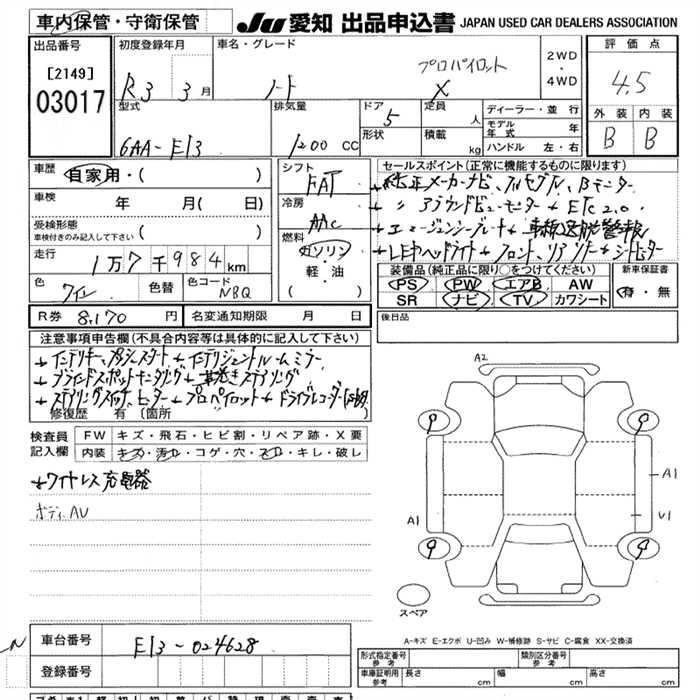 車内保管・守衛保管 JU 愛知 出品申込書 JAPAN USED CAR DEALERS ASSOCIATION
出品番号 初度登録年月 車名・グレード 評価点
[2149] R3 3月 ノート プロパイロット X 2WD・4WD 4.5
03017 型式 排気量 ドア 定員 ディーラー・並行 外装 内装
6AA-E13 1200 CC 5 人 モデル年式 年 B B
形状 積載 kg ハンドル 左・右
車歴 自家用・( ) シフト セールスポイント(正常に機能するものに限ります)
FAT 純正メーカーナビ、フルセグTV、Bモニター
車検 年 月( 日) 冷房 〃 アラウンドビューモニター ETC2.0
受検形態 AAC エマージェンシーブレーキ 車線逸脱警報
車検付きのみ記入して下さい ( ) 燃料 LEDヘッドライト フロント、リアソナー シートヒーター
走行 1万7千984km ガソリン 装備品(純正品に限り○をつけてください) 新車保証書
軽・油 PS PW エアB AW 有・無
色 ワイン 色替 色コード NBQ ( ) SR ナビ TV カワシート
R券 8,170 円 名変通知期限 月 日 後日品
注意事項申告欄(不具合内容等は具体的に記入して下さい)
インテリキー、プッシュスタート インテリジェントルームミラー
ブラインドスポットモニタリング 革巻きステアリング
ステアリングスイッチ ヒーター プロパイロット ドライブレコーダー
修復歴 有 〔箇所
検査員記入欄 FW キズ・飛石・ヒビ割・リペア跡・X要
内装 キズ・汚レ・コゲ・穴・スレ・キレ・破レ
ワイヤレス充電器
ボディAU
A2
9 9
A1
A1 U1
9 9
スペア
A-キズ E-エクボ U-凹み W-補修跡 S-サビ C-腐食 XX-交換済
N 車台番号 E13-024628
登録番号
形式指定番号 参考 類別区分番号 参考
車庫証明用 参考 長さ cm 幅 cm 高さ cm